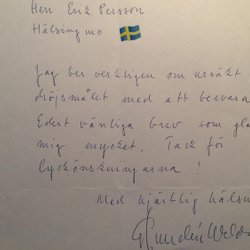 Herr Erik Persson
Hälsingmo
Jag ber verkligen om ursäkt
dröjsmålet med att besvara
Edert vänliga brev som gla
mig mycket. Tack för
lyckönskningarna!
Med hjärtlig häls